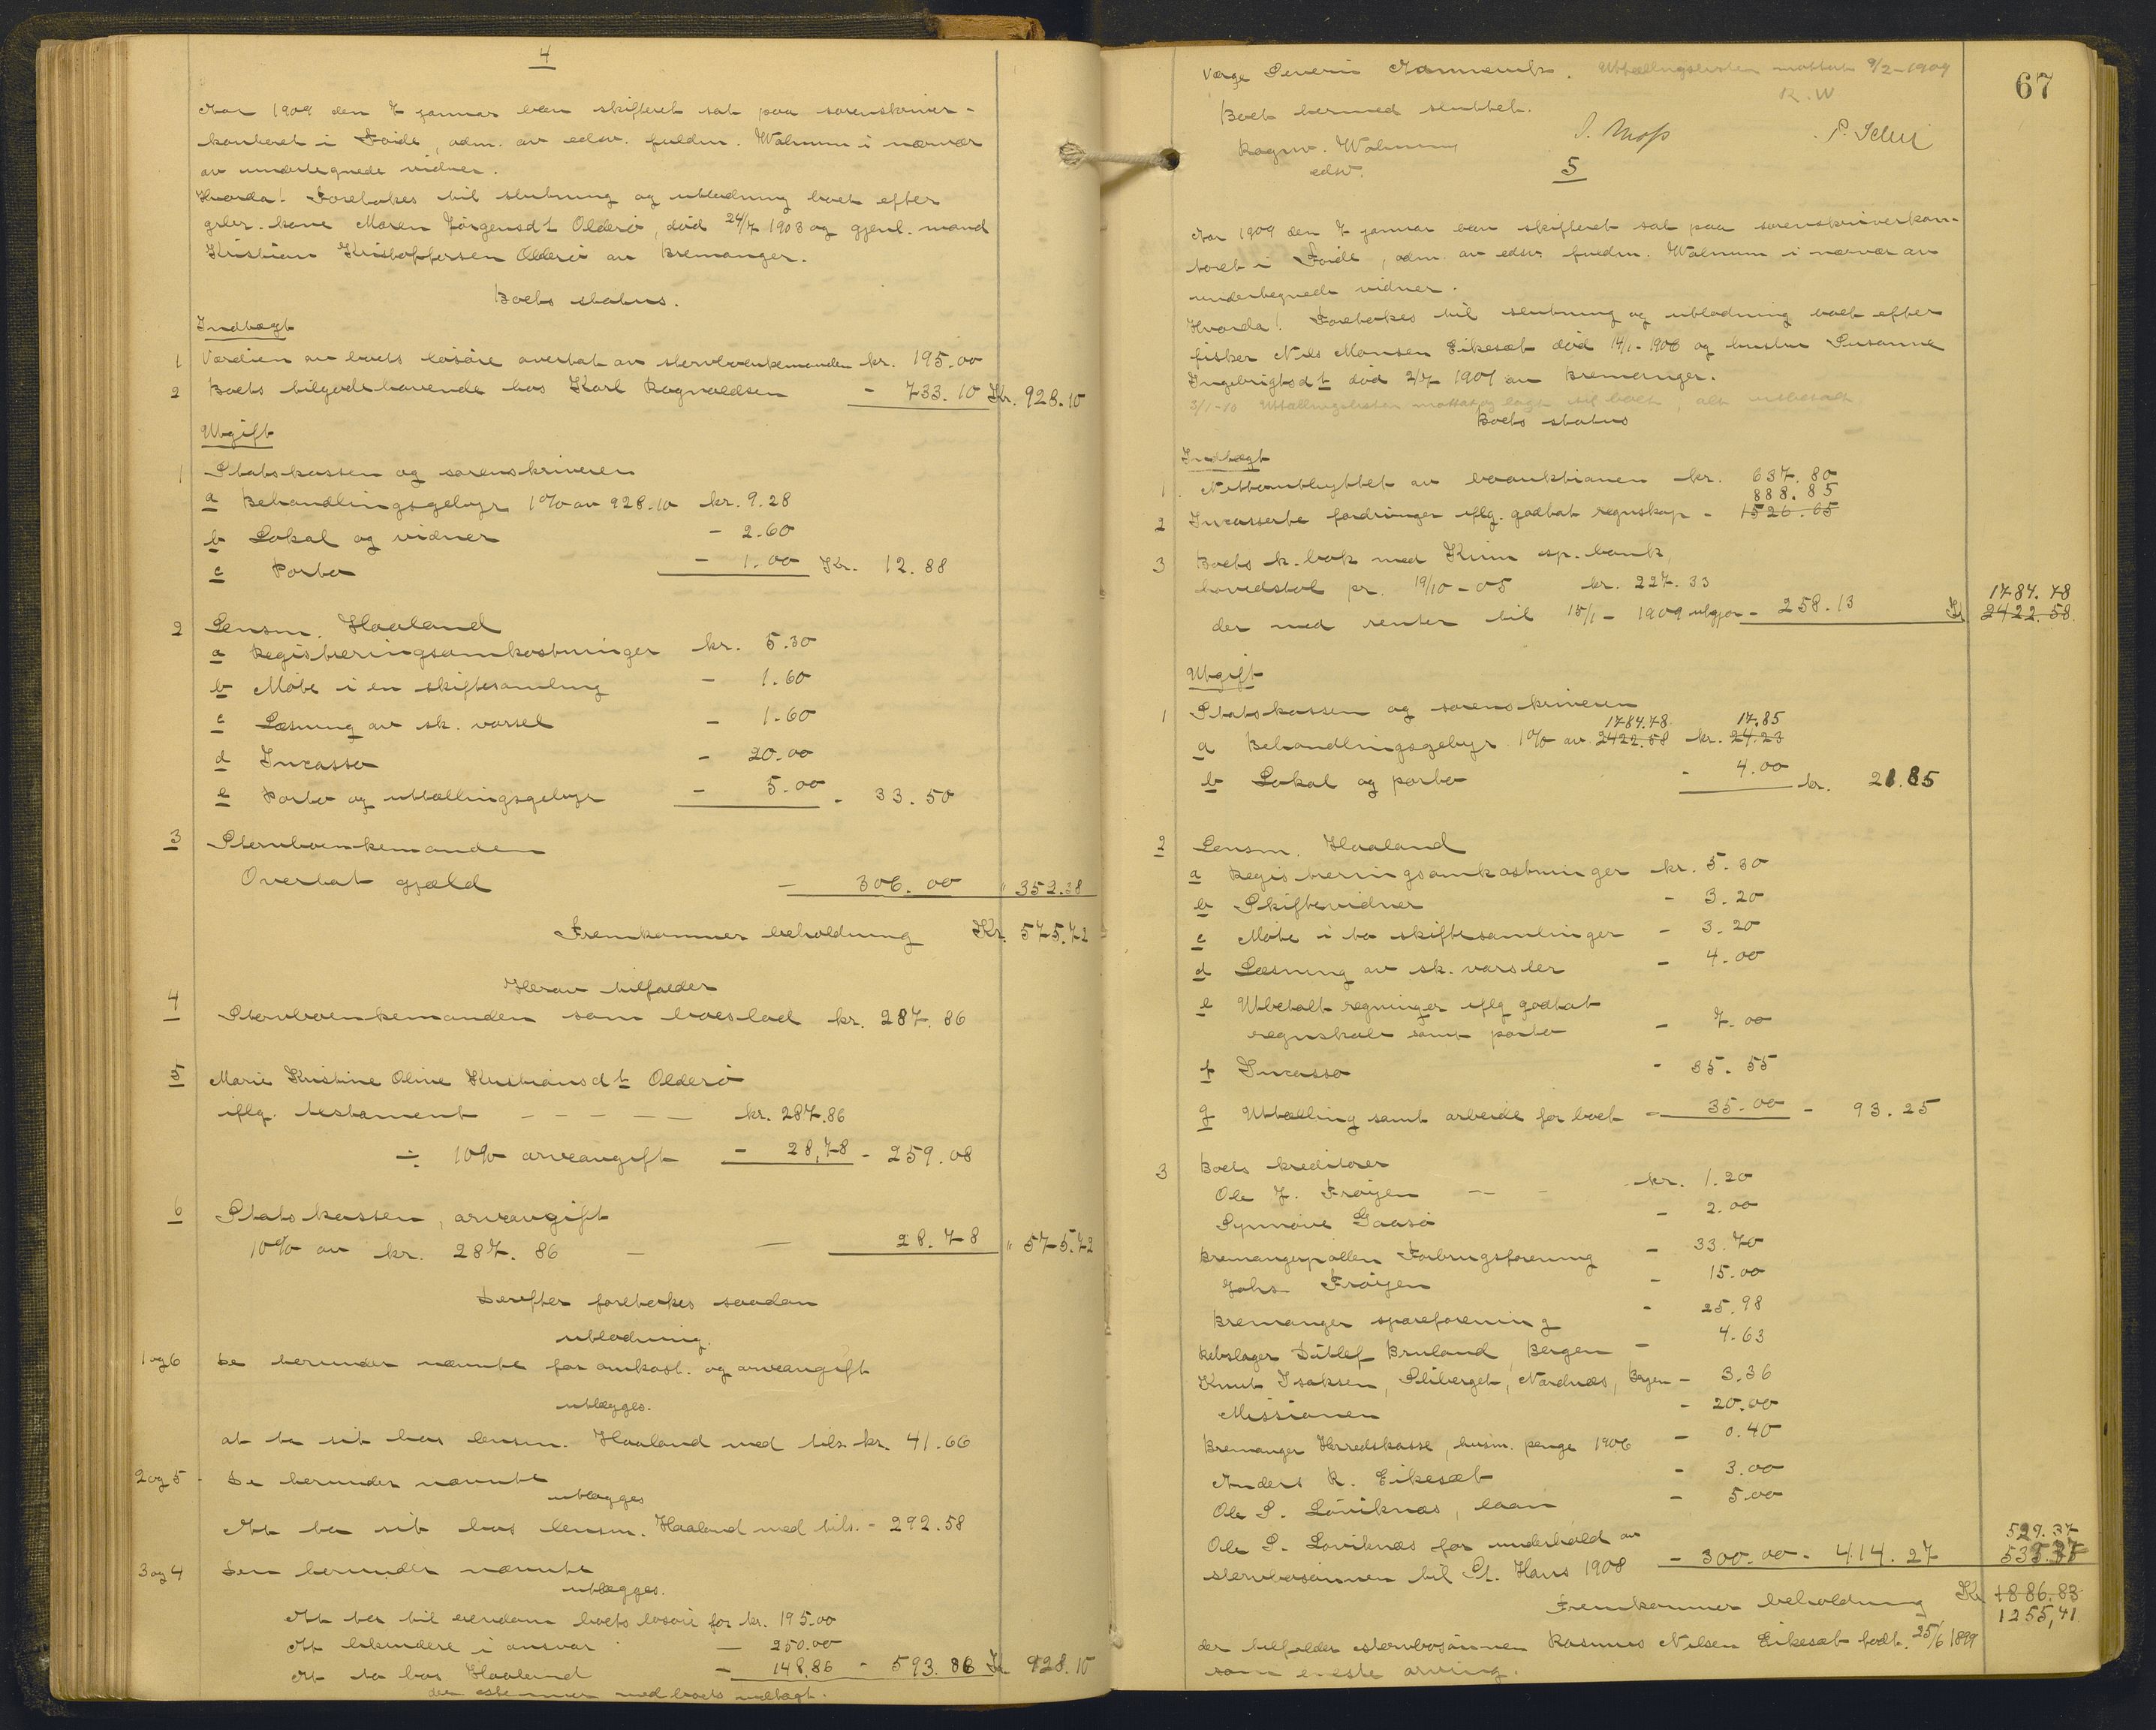 4
Aar 1909 den 7 januar blev skifteret sat paa sorenskriver-
kontoret i Förde, adm. av edsv. fuldm. Walnum i nærvær
av undertegnede vidner.
Hvorda! Foretokes til slutning og utlodning boet efter
grbr. kone Maren Jörgensdt Olderö, död 24/7 1903 og gjenl. mand
Kristian Kristoffersen Olderö av Bremanger.
Boets status.
Indtægt
1 Værdien av boets lösöre overtat av stervboenkemanden kr. 195.00
2 Boets tilgodehavende hos Karl Ragnvaldsen - 733.10 Kr. 928.10
Utgift
1 Statskassen og sorenskriveren
a Behandlingsgebyr 1% av 928.10 kr. 9.28
b Lokal og vidner - 2.60
c Porto - 1.00 Kr. 12.88
2 Lensm. Haaland
a Registreringsomkostninger kr. 5.30
b Möte i en skiftesamling - 1.60
c Læsning av sk. varsel - 1.60
d Incasso - 20.00
e Porto og uttællingsgebyr - 5.00 - 33.50
3 Stervboenkemanden
Overtat gjæld - 306.00 " 352.38
Fremkommer beholdning Kr. 575.72
Herav tilfalder
4 Stervboenkemanden som boeslod kr. 287.86
5 Marie Kristine Oline Kristiansdt Olderö
iflg. testament - - - - - kr. 287.86
÷ 10% arveavgift - 28,78 - 259.08
6 Statskassen, arveavgift
10% av kr. 287.86 - - 28.78 " 575.72
Derefter foretokes saadan
utlodning.
1 og 6 De herunder nævnte for omkost. og arveavgift
utlægges.
at ta sit hos lensm. Haaland med tils. kr. 41.66
2 og 5 - De herunder nævnte
utlægges
At ta sit hos lensm. Haaland med tils. - 292.58
3 og 4 Den herunder nævnte
utlægges.
At ta til eiendom boets lösöre for kr. 195.00
At likvidere i ansvar - 250.00
At ta hos Haaland - 148.86 - 593.86 Kr 928.10
der stemmer med boets indtægt.
67
Værge Severin . Uttællingslisten mottat 9/2-1909
R.W
Boet hermed sluttet.
Ragnv. Walnum
edsv.
S. Moss
5
Aar 1909 den 7 januar blev skifteret sat paa sorenskriverkon-
toret i Förde, adm. av edsv. fuldm. Walnum i nærvær av
undertegnede vidner.
Hvorda! Foretokes til slutning og utlodning boet efter
fisker Nils Monsen Eikesæt död 14/1-1908 og hustru Susanne
Ingebrigtsdt död 2/7 1907 av Bremanger.
3/1-10 Uttællingslisten mottat og lagt til boet, alt utbetalt
Boets status
Indtægt
1. Nettoutbyttet av boauktionen kr. 637.80
888.85
2 Incasserte fordringer iflg. godtat regnskap - 1526.65
3 Boets k. bok med Kinn sp. bank,
hovedstol pr. 19/10-05 kr. 227.33
1784.78
der med renter til 15/1-1909 utgjor - 258.13 Kr 2422.58
Utgift
1 Statskassen og sorenskriveren
1784.78 17.85
a Behandlingsgebyr 1% av 2422.58 kr. 24.23
b Lokal og porto - 4.00 kr. 21.85
2 Lensm. Haaland
a Registreringsomkostninger kr. 5.30
b Skiftevidner - 3.20
c Möte i to skiftesamlinger - 3.20
d Læsning av sk. varsler - 4.00
e Utbetalt regninger iflg godtat
regnskab samt porto - 7.00
f Incasso - 35.55
g Uttælling samt arbeide for boet - 35.00 - 93.25
3 Boets kreditorer
Ole J. Fröyen - - kr. 1.20
Synnöve Gaasö - 2.00
Bremangerpollen Forbrugsforening - 33.70
Johs Fröyen - 15.00
Bremanger spareforening - 25.98
Rebslager Ditlef Bruland, Bergen - 4.63
Knut Isaksen, Sliberget, Nordnæs, Bergen - 3.36
Missionen - 20.00
Bremanger Herredskasse, husm. penge 1906 - 0.40
Anders R. Eikesæt - 3.00
Ole S. Löviknæs, laan - 5.00
Ole S. Löviknæs for underhold av 529.37
stervbosönnen til St. Hans 1908 - 300.00 - 414.27 535.37
Fremkommer beholdning Kr 1886.83
1255,41
der tilfalder stervbosönnen Rasmus Nilsen Eikesæt födt 25/6 1899
som eneste arving.